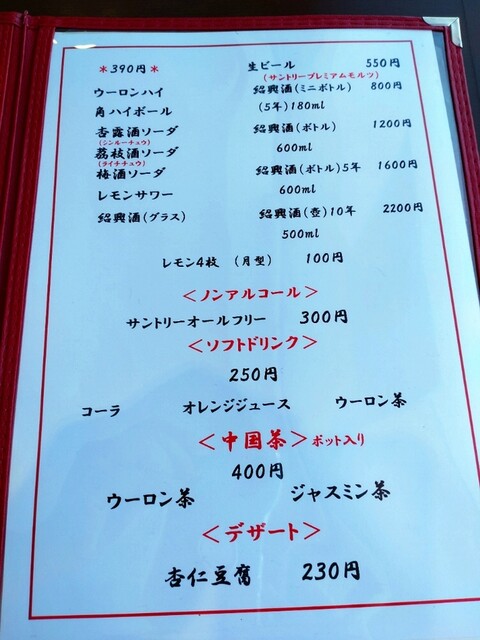 ＊390円＊
ウーロンハイ
角ハイボール
杏露酒ソーダ
(シンルーチュウ)
荔枝酒ソーダ
(ライチチュウ)
梅酒ソーダ
レモンサワー
紹興酒(グラス)
生ビール 550円
(サントリープレミアムモルツ)
紹興酒(ミニボトル) 800円
(5年)180ml
紹興酒(ボトル) 1200円
600ml
紹興酒(ボトル)5年 1600円
600ml
紹興酒(壺)10年 2200円
500ml
レモン4枚 (月型) 100円
＜ノンアルコール＞
サントリーオールフリー 300円
＜ソフトドリンク＞
250円
コーラ オレンジジュース ウーロン茶
＜中国茶＞ポット入り
400円
ウーロン茶 ジャスミン茶
＜デザート＞
杏仁豆腐 230円